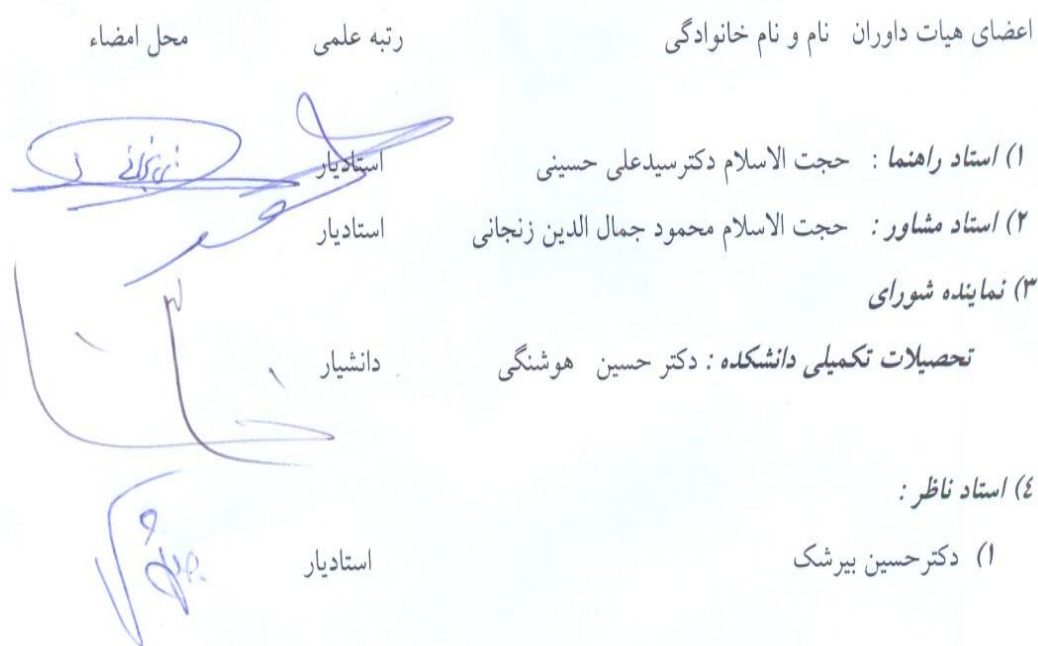 اعضای هیات داوران نام و نام خانوادگی رتبه علمی محل امضاء
۱) استاد راهنما : حجت الاسلام دکترسیدعلی حسینی استادیار
۲) استاد مشاور : حجت الاسلام محمود جمال الدین زنجانی استادیار
۳) نماینده شورای
تحصیلات تکمیلی دانشکده : دکتر حسین هوشنگی دانشیار
۴) استاد ناظر :
۱) دکترحسین بیرشک استادیار